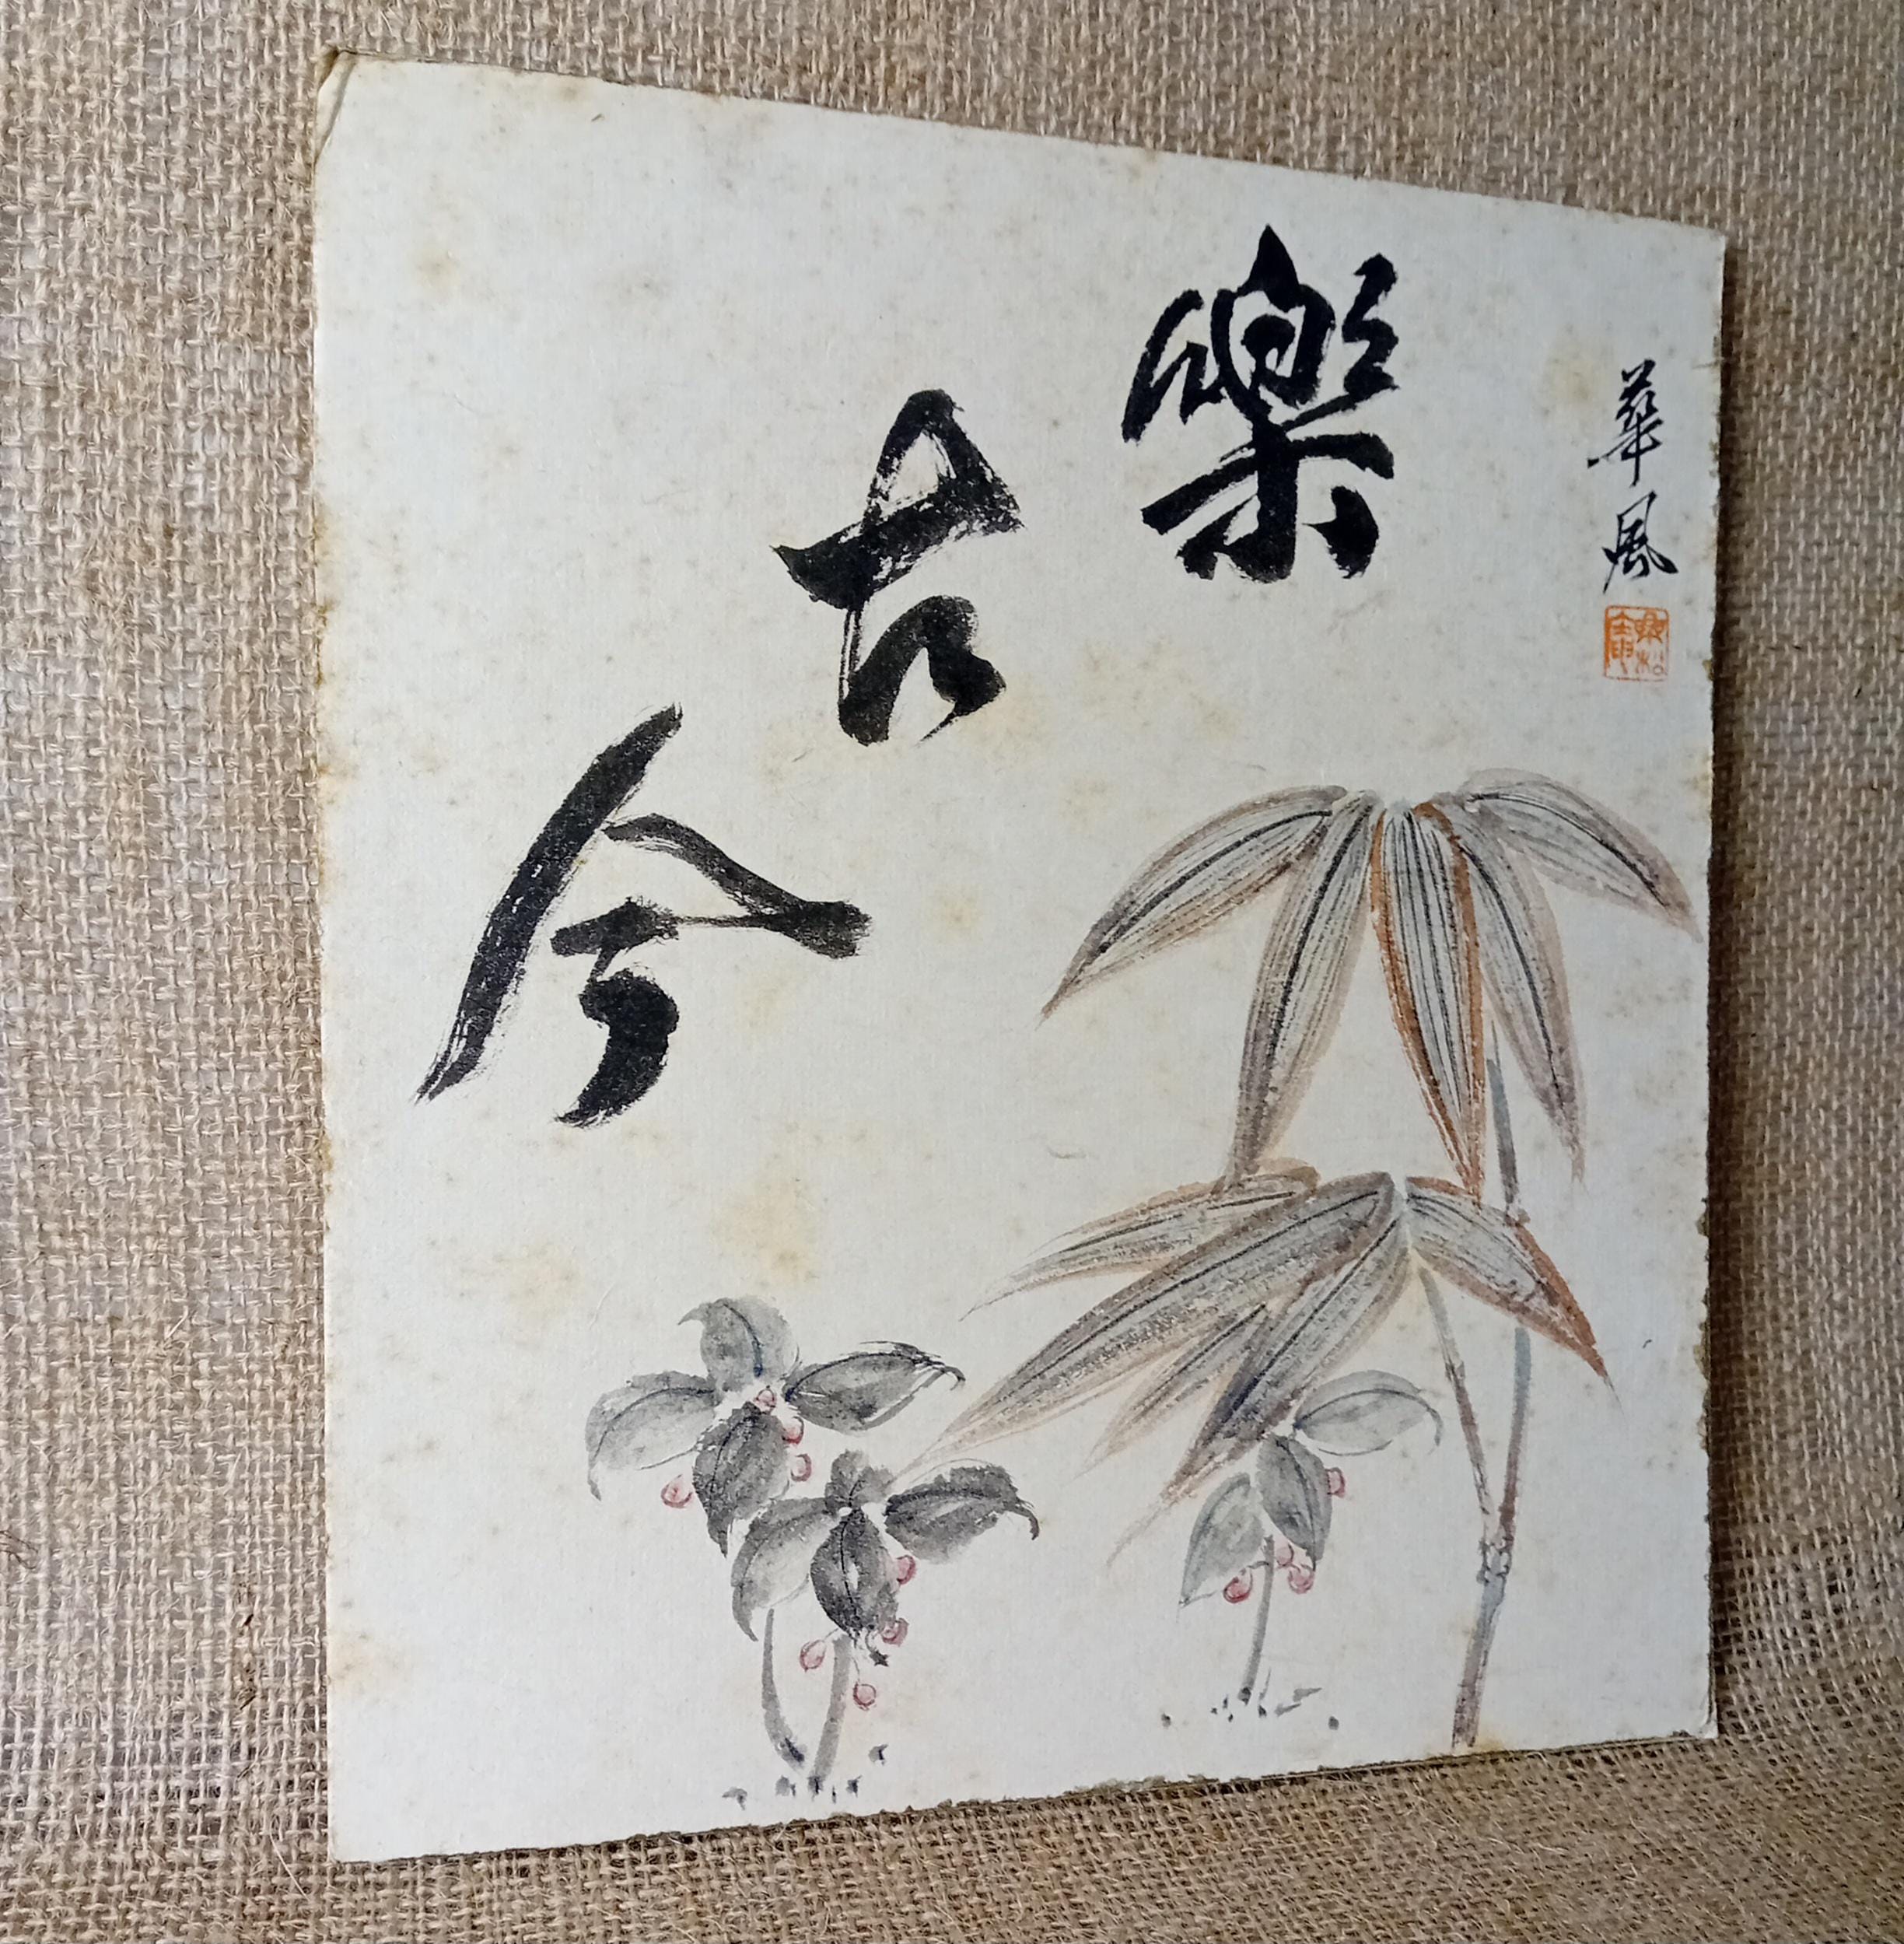 華風
樂古今